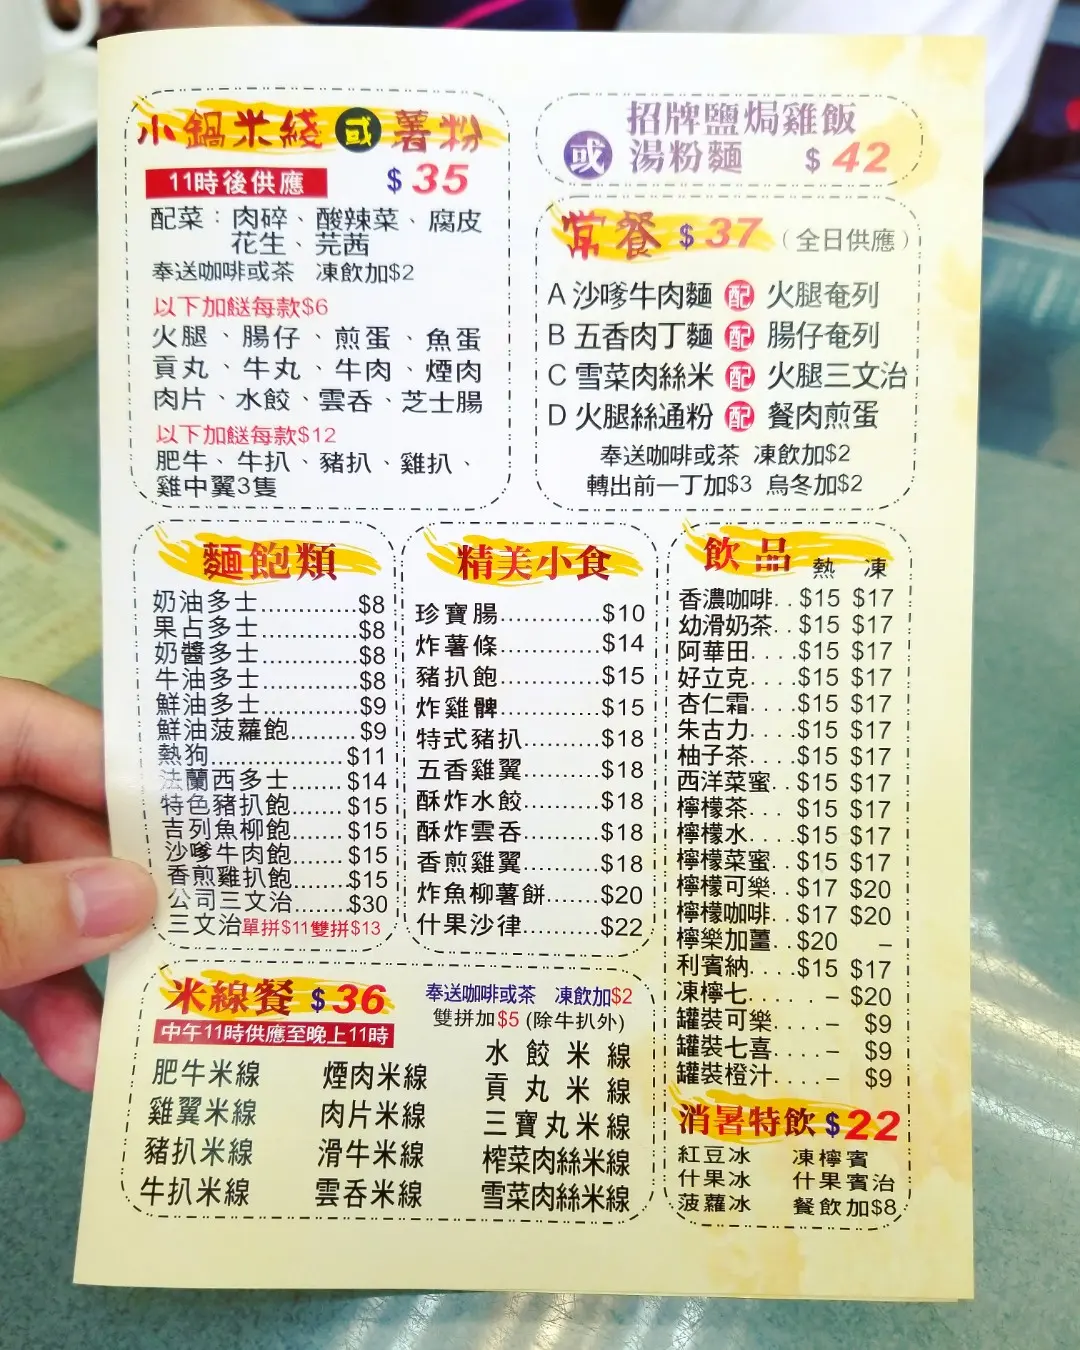 小鍋米綫或薯粉
11時後供應 $35
配菜：肉碎、酸辣菜、腐皮
花生、芫茜
奉送咖啡或茶 凍飲加$2
以下加餸每款$6
火腿、腸仔、煎蛋、魚蛋
貢丸、牛丸、牛肉、煙肉
肉片、水餃、雲吞、芝士腸
以下加餸每款$12
肥牛、牛扒、豬扒、雞扒、
雞中翼3隻
招牌鹽焗雞飯
或湯粉麵 $42
常餐 $37 (全日供應)
A 沙嗲牛肉麵 配 火腿奄列
B 五香肉丁麵 配 腸仔奄列
C 雪菜肉絲米 配 火腿三文治
D 火腿絲通粉 配 餐肉煎蛋
奉送咖啡或茶 凍飲加$2
轉出前一丁加$3 烏冬加$2
麵飽類
奶油多士.............$8
果占多士.............$8
奶醬多士.............$8
牛油多士.............$8
鮮油多士.............$9
鮮油菠蘿飽.........$9
熱狗.................$11
法蘭西多士.......$14
特色豬扒飽.......$15
吉列魚柳飽.......$15
沙嗲牛肉飽.......$15
香煎雞扒飽.......$15
公司三文治.......$30
三文治單拼$11雙拼$13
精美小食
珍寶腸.............$10
炸薯條.............$14
豬扒飽.............$15
炸雞髀.............$15
特式豬扒..........$18
五香雞翼..........$18
酥炸水餃..........$18
酥炸雲吞..........$18
香煎雞翼..........$18
炸魚柳薯餅.......$20
什果沙律..........$22
飲品 熱 凍
香濃咖啡..$15 $17
幼滑奶茶..$15 $17
阿華田....$15 $17
好立克....$15 $17
杏仁霜....$15 $17
朱古力....$15 $17
柚子茶....$15 $17
西洋菜蜜..$15 $17
檸檬茶....$15 $17
檸檬水....$15 $17
檸檬菜蜜..$15 $17
檸檬可樂..$17 $20
檸檬咖啡..$17 $20
檸樂加薑..$20 –
利賓納....$15 $17
凍檸七......– $20
罐裝可樂....– $9
罐裝七喜....– $9
罐裝橙汁....– $9
消暑特飲 $22
紅豆冰 凍檸賓
什果冰 什果賓治
菠蘿冰 餐飲加$8
米線餐 $36
奉送咖啡或茶 凍飲加$2
雙拼加$5 (除牛扒外)
中午11時供應至晚上11時
肥牛米線 煙肉米線 水餃米線
雞翼米線 肉片米線 貢丸米線
豬扒米線 滑牛米線 三寶丸米線
牛扒米線 雲吞米線 榨菜肉絲米線
雪菜肉絲米線